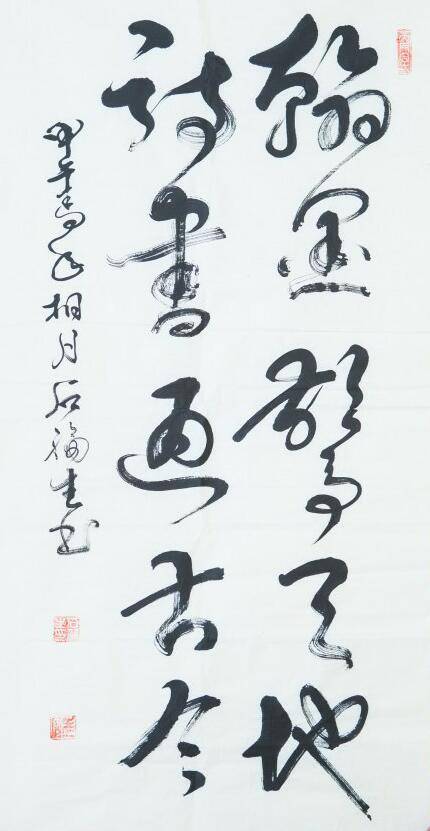 翰墨驚天地
詩書通古今
甲午馬年相月石福生書